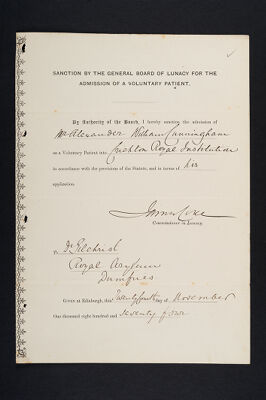 SANCTION BY THE GENERAL BOARD OF LUNACY FOR THE
ADMISSION OF A VOLUNTARY PATIENT.
By Authority of the Board, I hereby sanction the admission of
Mr Alexander William Cunningham
as a Voluntary Patient into Crichton Royal Institution
in accordance with the provisions of the Statute, and in terms of his
application.
James Coxe
Commissioner in Lunacy.
To Dr Gilchrist
Royal Asylum
Dumfries
Given at Edinburgh, this Twenty fourth day of November
One thousand eight hundred and seventy four